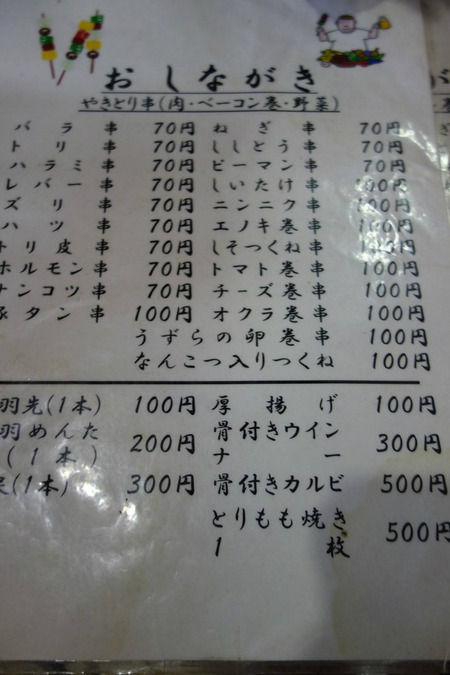 おしながき
やきとり串(肉・ベーコン巻・野菜)
バラ串 70円 ねぎ串 70円
トリ串 70円 ししとう串 70円
ハラミ串 70円 ピーマン串 70円
レバー串 70円 しいたけ串 100円
ズリ串 70円 ニンニク串 100円
ハツ串 70円 エノキ巻串 100円
トリ皮串 70円 しそつくね串 100円
ホルモン串 70円 トマト巻串 100円
ナンコツ串 70円 チーズ巻串 100円
豚タン串 100円 オクラ巻串 100円
うずらの卵巻串 100円
なんこつ入りつくね 100円
羽先(1本) 100円 厚揚げ 100円
羽めんた
(1本) 200円 骨付きウイン
ナー 300円
(1本) 300円 骨付きカルビ 500円
とりもも焼き
1枚 500円